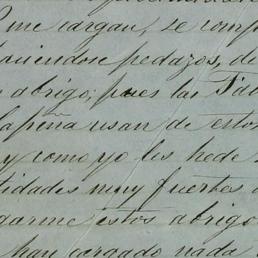 me cargan, se comp
haciendose pedazos, de
abrigo; pues las Fab
Lapeña usan de estos
y como yo les hede
tidades muy fuertes
garme estos abrigo
han cargado nada